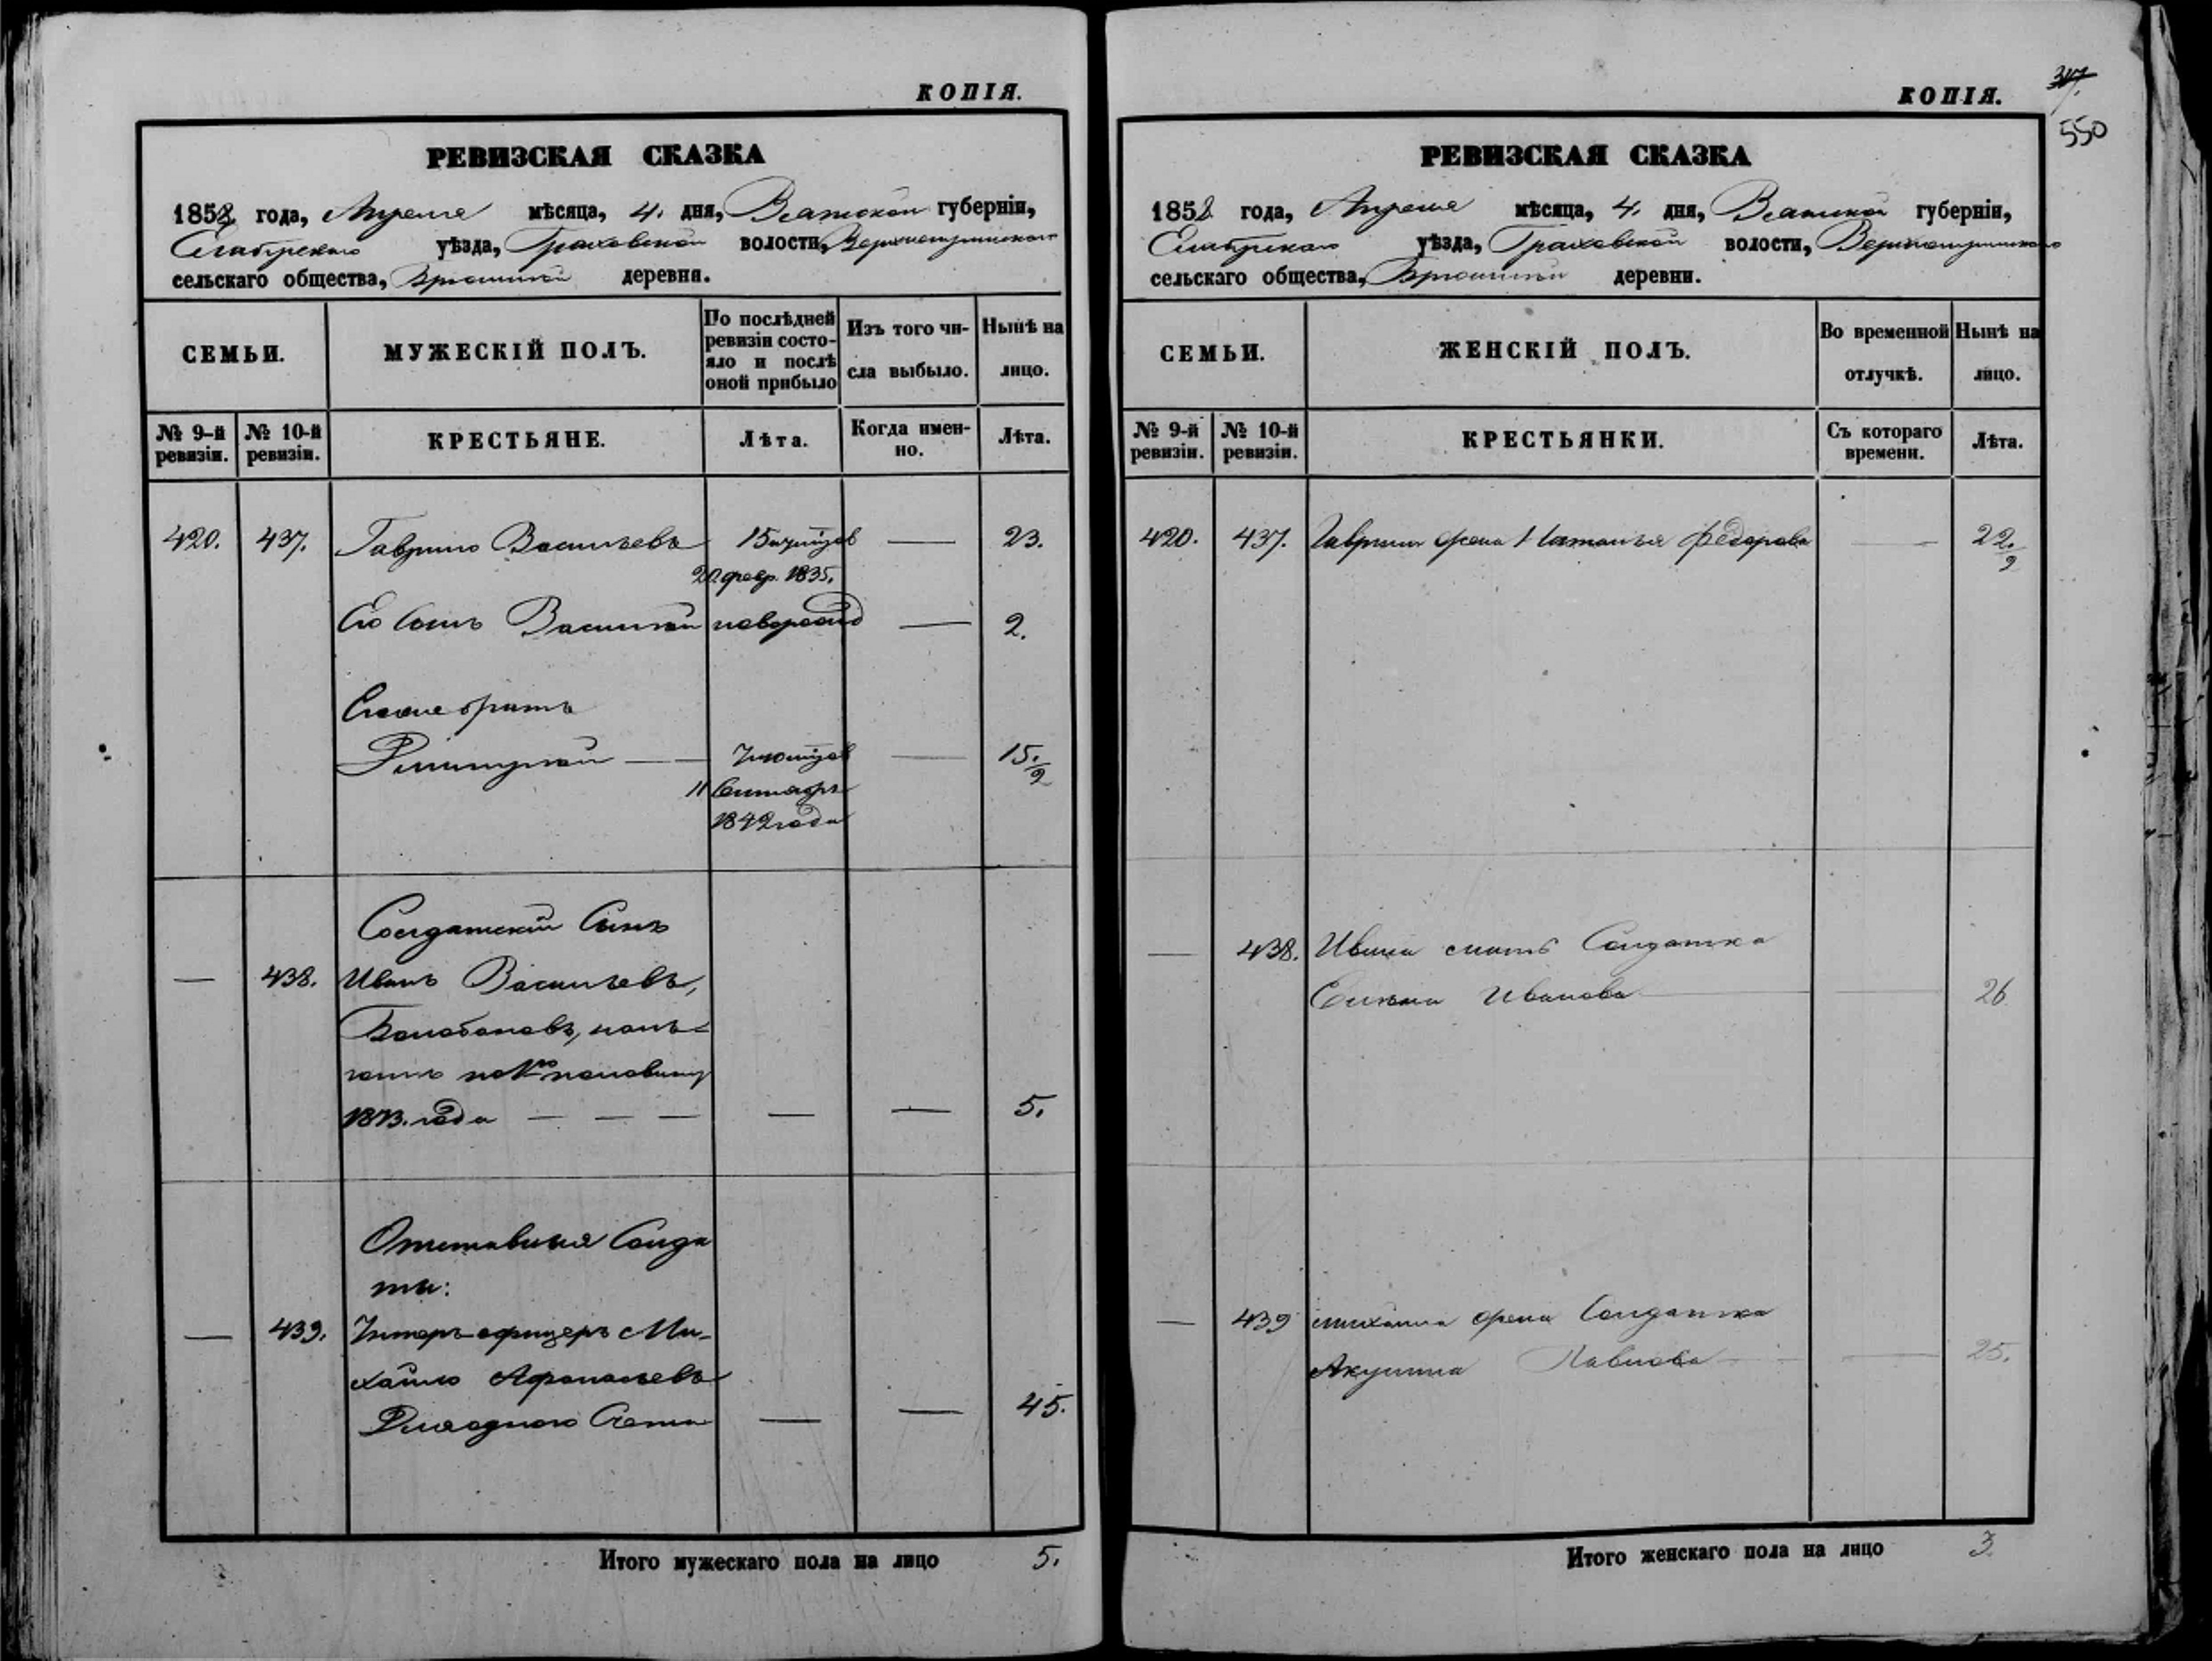 КОПІЯ.
РЕВИЗСКАЯ СКАЗКА
1858 года, Апреля мѣсяца, 4. дня, Вятской губерніи,
Елабугскаго уѣзда, Граховской волости,
сельскаго общества, деревни.
СЕМЬИ.
МУЖЕСКІЙ ПОЛЪ.
По послѣдней ревизіи состояло и послѣ оной прибыло
Изъ того числа выбыло.
Нынѣ на лицо.
№ 9-й ревизіи.
№ 10-й ревизіи.
КРЕСТЬЯНЕ.
Лѣта.
Когда именно.
Лѣта.
420. 437. Гаврило Васильевъ 15 — 23.
20 февр. 1835.
Его Сынъ Василий новорожд — 2.
братъ
Дмитрий — 7 — 15.
11 Сентябр
1842 года
Солдатский Сынъ
— 438. Иванъ Васильевъ,
половину
года — — — — — 5.
Отставныя Солда
ты:
— 439. Унтеръ-офицеръ Ми-
хайло Афанасьевъ
— — 45.
Итого мужескаго пола на лицо 5.
КОПІЯ.
317.
550
РЕВИЗСКАЯ СКАЗКА
1858 года, Апреля мѣсяца, 4. дня, Вятской губерніи,
Елабугскаго уѣзда, Граховской волости,
сельскаго общества, деревни.
СЕМЬИ.
ЖЕНСКІЙ ПОЛЪ.
Во временной отлучкѣ.
Нынѣ на лицо.
№ 9-й ревизіи.
№ 10-й ревизіи.
КРЕСТЬЯНКИ.
Съ котораго времени.
Лѣта.
420. 437. Гаврилы жена Наталья Федорова — 22.
— 438. Ивана мать Солдатка
Иванова — 26
— 439 Михайла жена Солдатка
Акулина Павлова — 25.
Итого женскаго пола на лицо 3